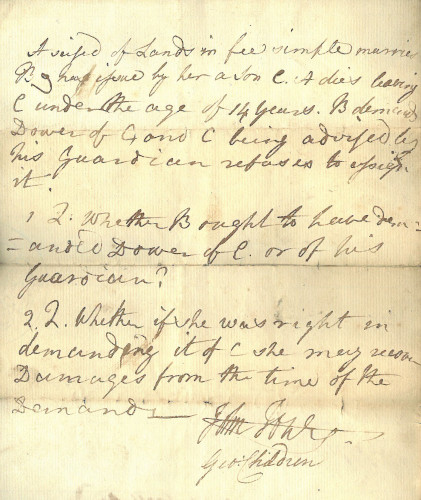 A seised of Lands in fee simple marries
B & has issue by her a Son C. A dies leaving
C under the age of 14 Years. B demands
Dower of C and C being advised by
his Guardian refuses to assign
it.
1 2. Whether B ought to have dem=
=anded Dower of C. or of his
Guardian?
2. 2. Whether if she was right in
demanding it of C she may recover
Damages from the time of the
Demand
John
Geo: Children